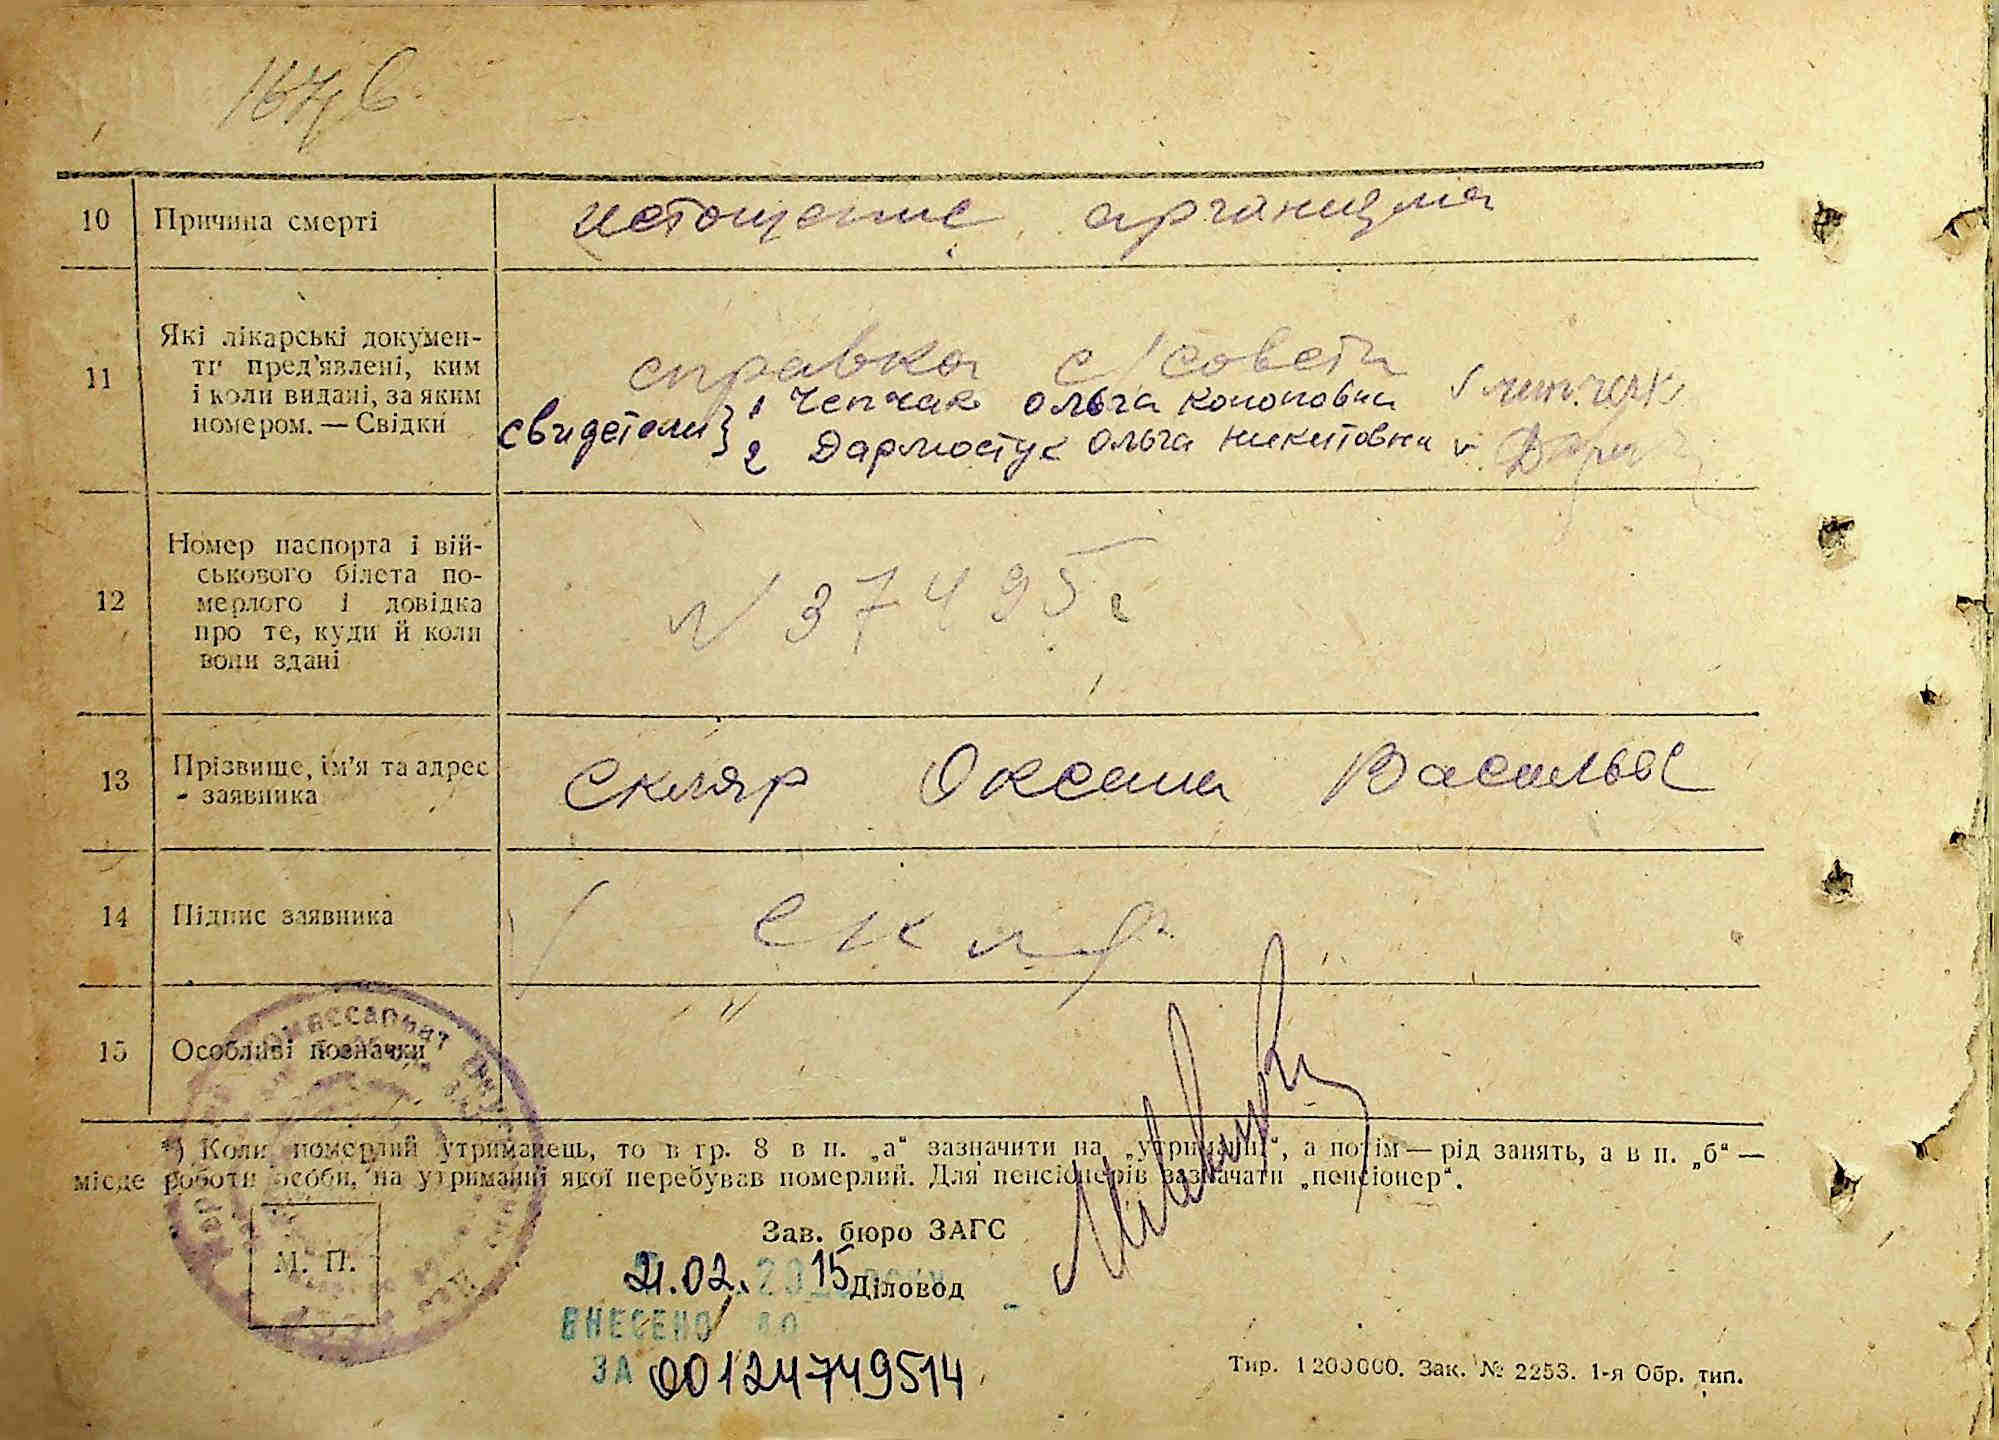 10 Причина смерті истощение организма
11 Які лікарські докумен-
ти пред'явлені, ким
і коли видані, за яким
номером. — Свідки
справка с/совета
свидетели} 1 Чепчак Ольга Кононовна
2 Дармостук Ольга Никитовна
12 Номер паспорта і вій-
ськового білета по-
мерлого і довідка
про те, куди й коли
вони здані
N 37495
13 Прізвище, ім'я та адрес
заявника
Скляр Оксана Василье
14 Підпис заявника Скляр
15 Особливі позначки "
*) Коли померлий утриманець, то в гр. 8 в п. „а“ зазначити на „утриманні“, а потім — рід занять, а в п. „б“ —
місце роботи особи, на утриманні якої перебував померлий. Для пенсіонерів зазначати „пенсіонер“.
М. П.
Зав. бюро ЗАГС
21.02.2015 Діловод
ВНЕСЕНО ДО
ЗА 00124749514
Тир. 1200000. Зак. № 2253. 1-я Обр. тип.